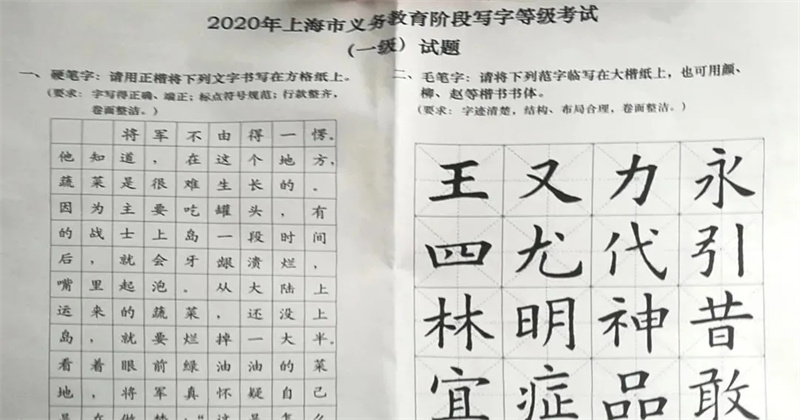 2020年上海市义务教育阶段写字等级考试
（一级）试题
一、硬笔字：请用正楷将下列文字书写在方格纸上。
（要求：字写得正确、端正；标点符号规范；行款整齐，
卷面整洁。）
将军不由得一愣。
他知道，在这个地方，
蔬菜是很难生长的。
因为主要吃罐头，有
的战士上岛一段时间
后，就会牙龈溃烂，
嘴里起泡。从大陆上
运来的蔬菜，还没上
岛，就要烂掉一大半。
看着眼前绿油油的菜
地，将军真怀疑自己
是在做梦：“这是怎么
二、毛笔字：请将下列范字临写在大楷纸上，也可用颜、
柳、赵等楷书书体。
（要求：字迹清楚，结构、布局合理，卷面整洁。）
王又力永
四尤代引
林明神昔
宜症品敢